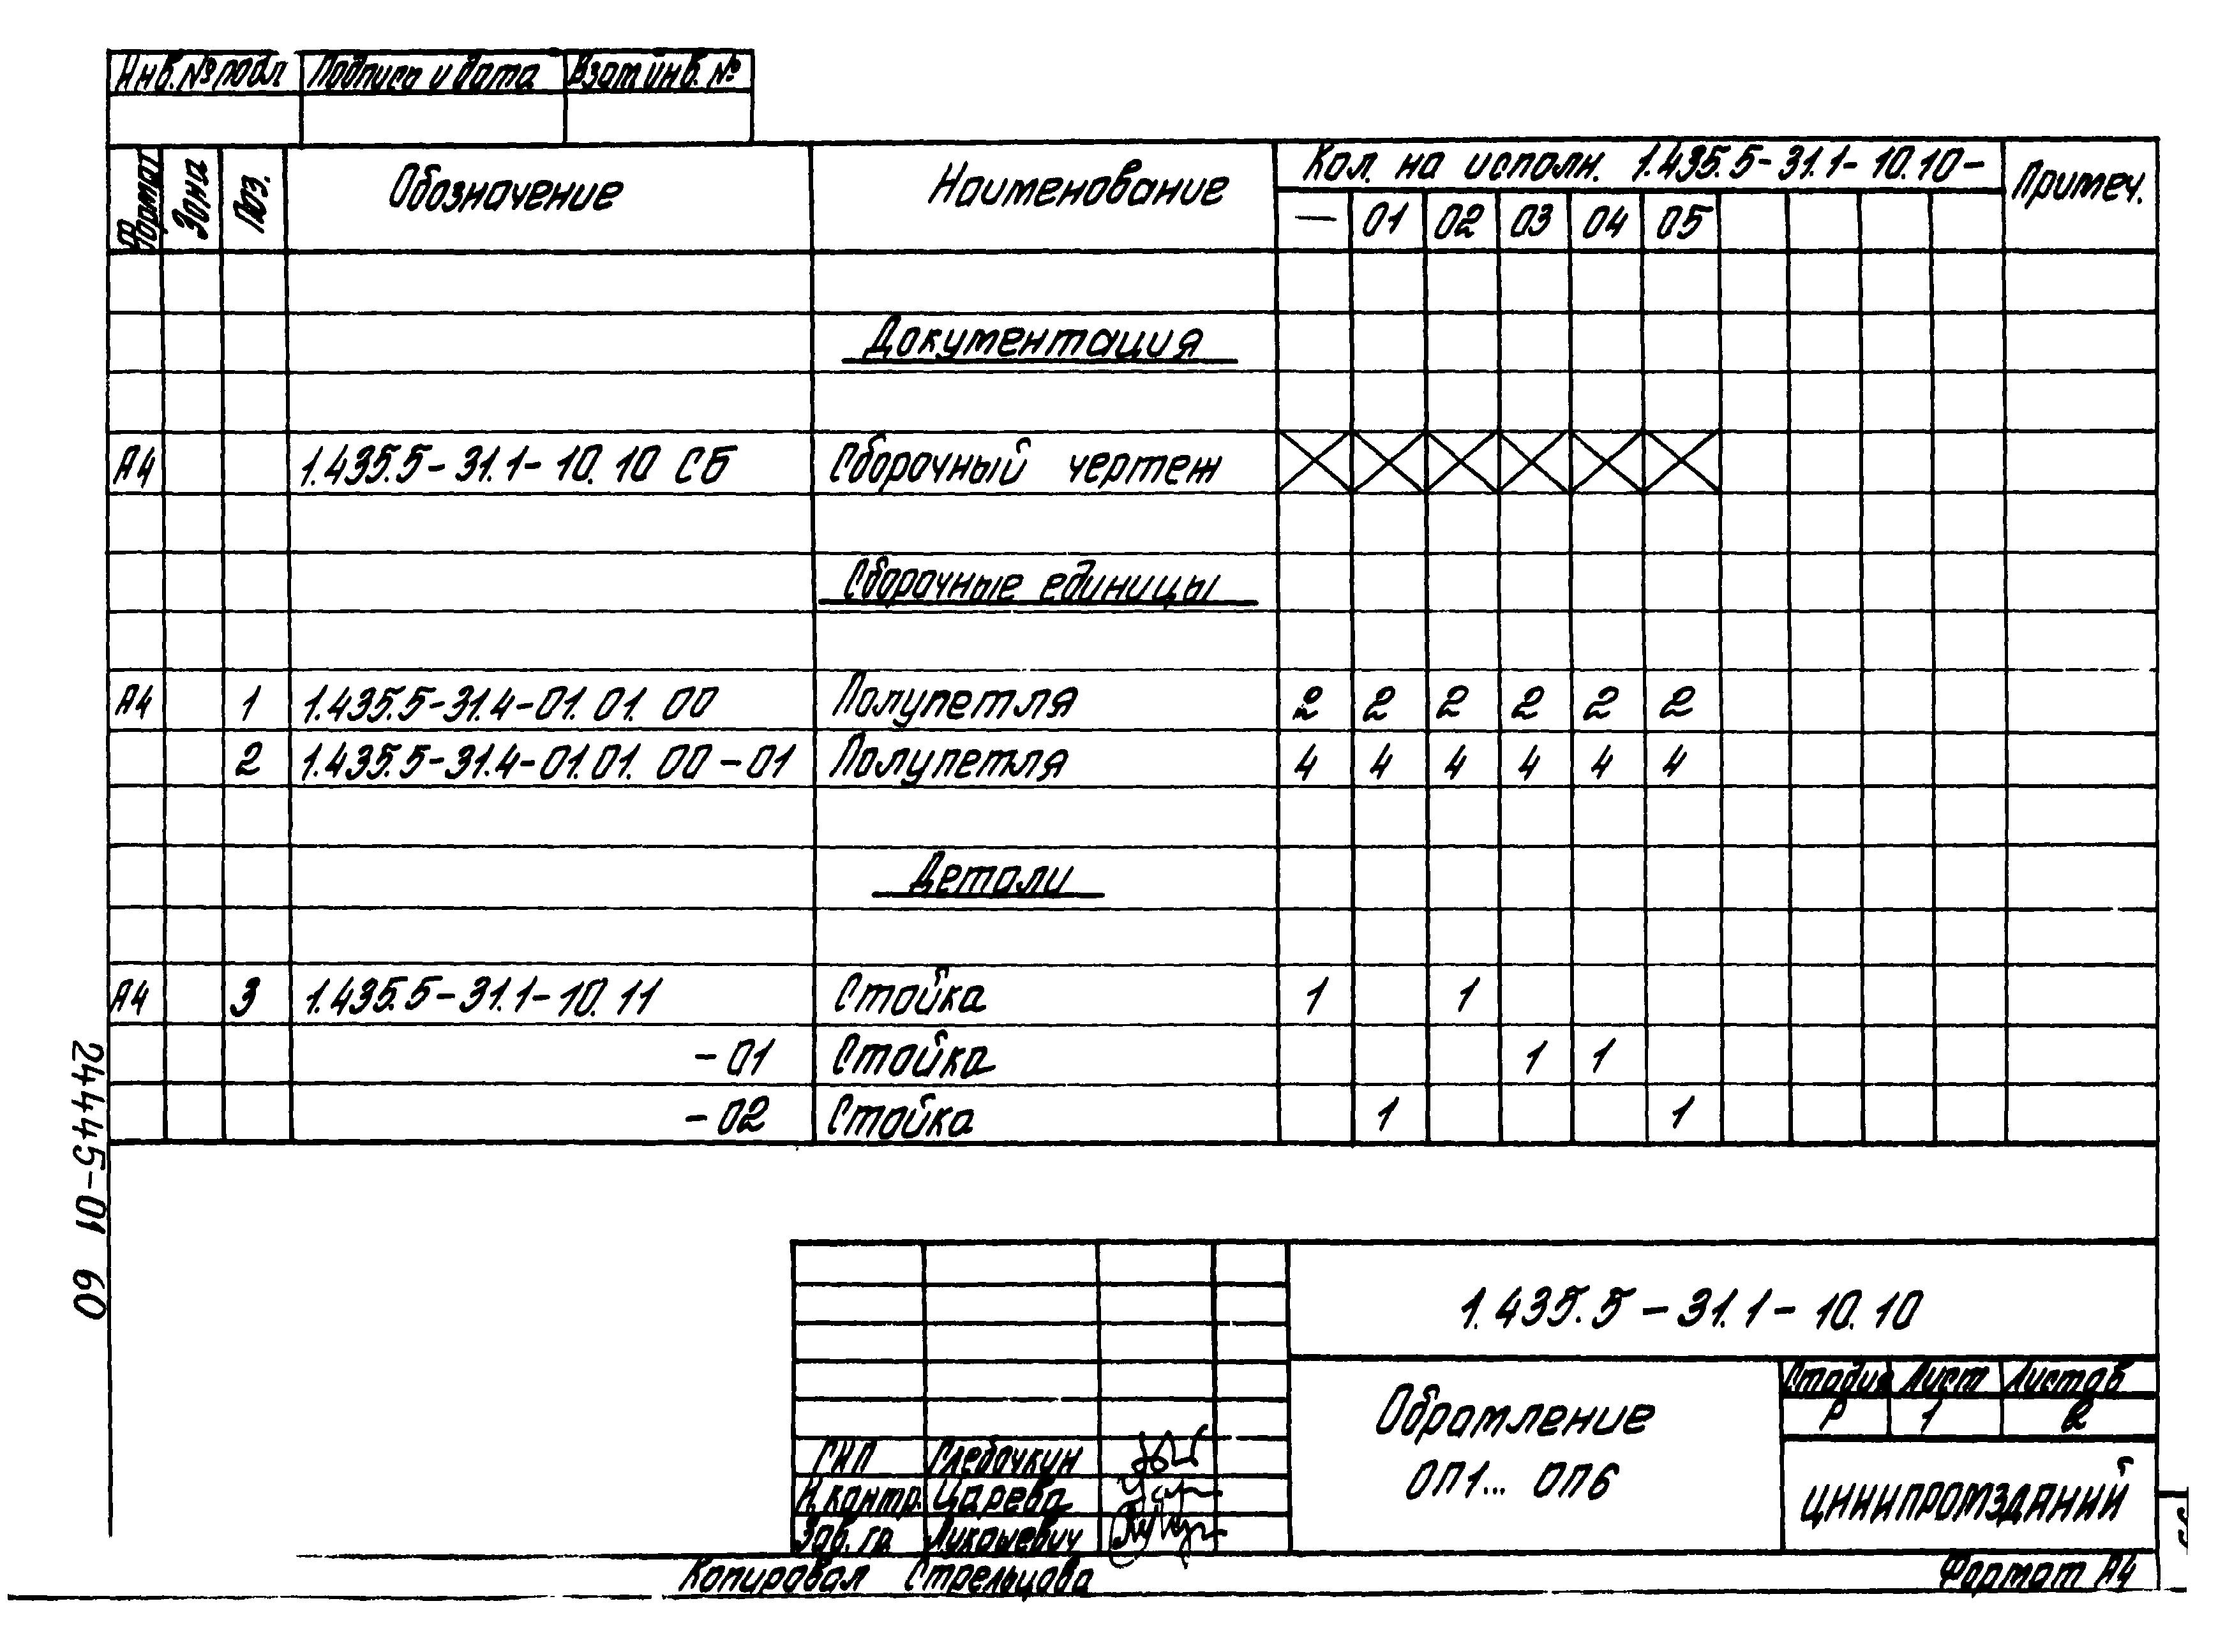 Инв. № подл. Подпись и дата Взам. инв. №
Формат Зона Поз. Обозначение Наименование Кол. на исполн. 1.435.5-31.1-10.10- Примеч.
— 01 02 03 04 05
Документация
А4 1.435.5-31.1-10.10 СБ Сборочный чертеж
Сборочные единицы
А4 1 1.435.5-31.4-01.01.00 Полупетля 2 2 2 2 2 2
2 1.435.5-31.4-01.01.00-01 Полупетля 4 4 4 4 4 4
Детали
А4 3 1.435.5-31.1-10.11 Стойка 1 1
-01 Стойка 1 1
-02 Стойка 1 1
24445-01 60
1.435.5-31.1-10.10
Обрамление
ОП1... ОП6
Стадия Лист Листов
Р 1 2
ЦНИИПРОМЗДАНИЙ
ГИП Глебочкин
Н. контр. Царева
Зав. гр. Лукашевич
Копировал Стрельцова Формат А4